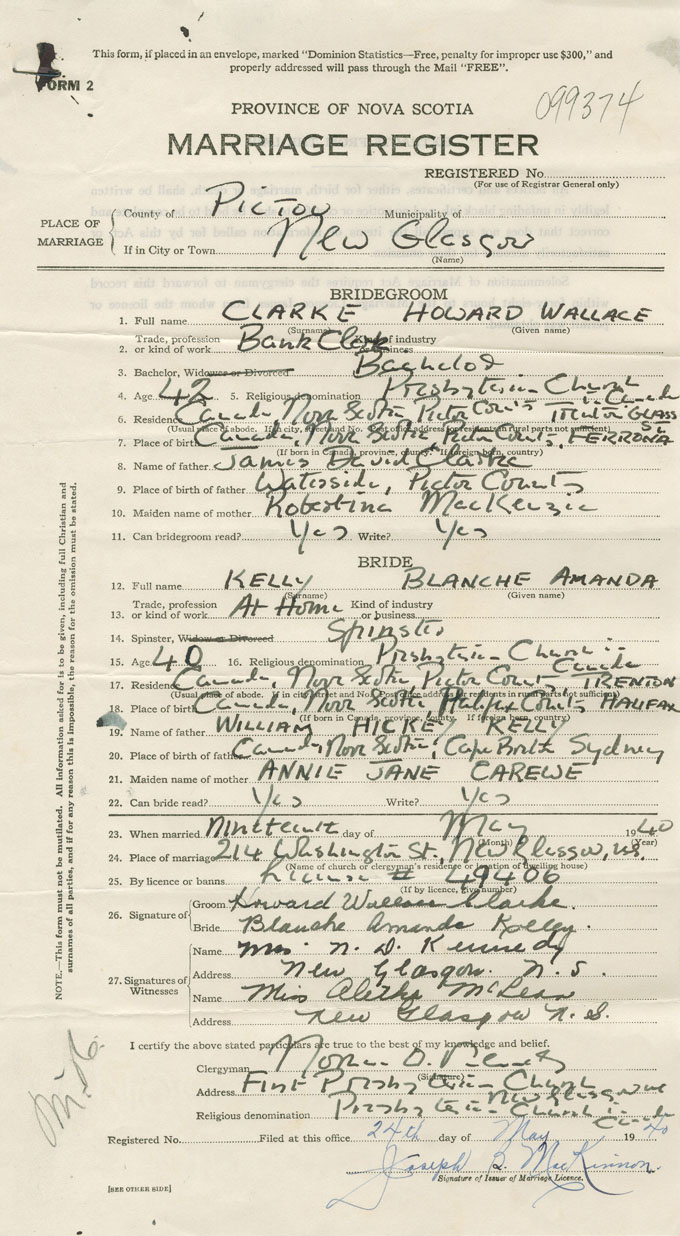 This form, if placed in an envelope, marked "Dominion Statistics—Free, penalty for improper use $300," and
properly addressed will pass through the Mail "FREE".
FORM 2
099374
PROVINCE OF NOVA SCOTIA
MARRIAGE REGISTER
REGISTERED No.
(For use of Registrar General only)
PLACE OF MARRIAGE
County of Pictou Municipality of
If in City or Town New Glasgow
(Name)
BRIDEGROOM
1. Full name CLARKE HOWARD WALLACE
(Surname) (Given name)
2. Trade, profession or kind of work Bank Clerk Kind of industry or business
3. Bachelor, Widower or Divorced Bachelor
4. Age 42 5. Religious denomination Presbyterian Church in Canada
6. Residence Canada, Nova Scotia, Pictou County Trenton GLASS St.
(Usual place of abode. If in city, street and No. Post office address for residents in rural parts not sufficient)
7. Place of birth Canada, Nova Scotia, Pictou County, FERRONA
(If born in Canada, province, county. If foreign born, country)
8. Name of father James David Clarke
9. Place of birth of father Waterside, Pictou County
10. Maiden name of mother Robertina MacKenzie
11. Can bridegroom read? Yes Write? Yes
BRIDE
12. Full name KELLY BLANCHE AMANDA
(Surname) (Given name)
13. Trade, profession or kind of work At Home Kind of industry or business
14. Spinster, Widow or Divorced Spinster
15. Age 40 16. Religious denomination Presbyterian Church in Canada
17. Residence Canada, Nova Scotia, Pictou County TRENTON
(Usual place of abode. If in city street and No. Post office address for residents in rural parts not sufficient)
18. Place of birth Canada, Nova Scotia, Halifax County HALIFAX
(If born in Canada, province, county. If foreign born, country)
19. Name of father WILLIAM HICKEY KELLY
20. Place of birth of father Canada, Nova Scotia, Cape Breton Sydney
21. Maiden name of mother ANNIE JANE CAREWE
22. Can bride read? Yes Write? Yes
23. When married Nineteenth day of May 1940
(Month) (Year)
24. Place of marriage 214 Washington St., New Glasgow, N.S.
(Name of church or clergyman's residence or location of dwelling house)
25. By licence or banns License # 49406
(If by licence, give number)
26. Signature of
Groom Howard Wallace Clarke.
Bride Blanche Amanda Kelley.
27. Signatures of Witnesses
Name Mrs. N. D. Kennedy
Address New Glasgow. N.S.
Name Miss McLean
Address New Glasgow N.S.
I certify the above stated particulars are true to the best of my knowledge and belief.
Clergyman Norman D.
(Signature)
Address First Presbyterian Church New Glasgow
Religious denomination Presbyterian Church in Canada
Registered No. Filed at this office 24th day of May 1940
Joseph B. MacKinnon.
Signature of Issuer of Marriage Licence.
[SEE OTHER SIDE]
NOTE.—This form must not be mutilated. All information asked for is to be given, including full Christian and
surnames of all parties, and if for any reason this is impossible, the reason for the omission must be stated.